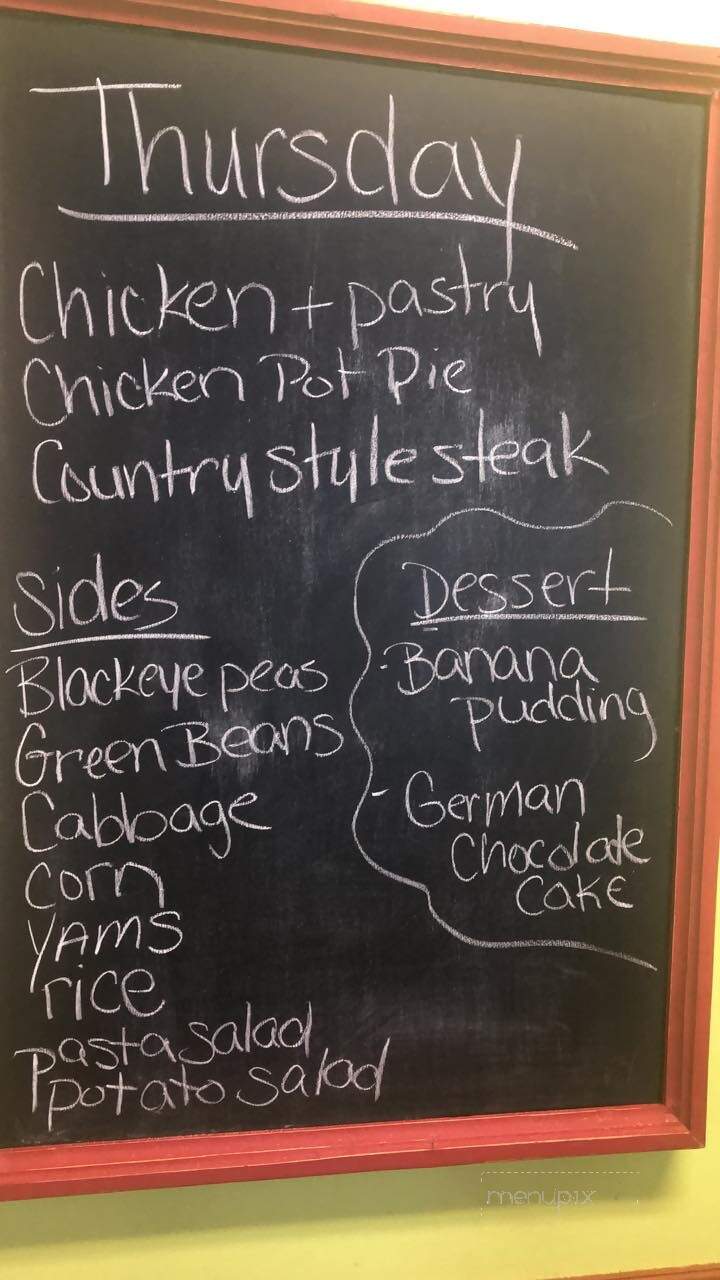 Thursday
Chicken + pastry
Chicken Pot Pie
Country style steak
Sides
Blackeye peas
Green Beans
Cabbage
Corn
YAMS
rice
pasta salad
potato salad
Dessert
- Banana
pudding
- German
Chocolate
Cake
menupix